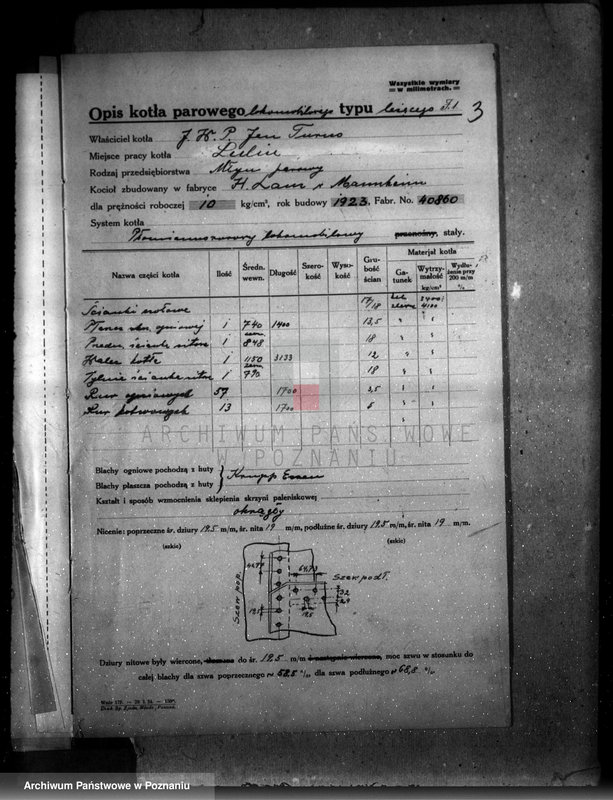 Wszystkie wymiary
w milimetrach.
Opis kotła parowego lokomobilowego typu leżącego 3
Właściciel kotła J. W. P. Jen Turno
Miejsce pracy kotła
Rodzaj przedsiębiorstwa Młyn parowy
Kocioł zbudowany w fabryce H. Lanz Mannheim
dla prężności roboczej 10 kg/cm², rok budowy 1923. Fabr. No. 40860
System kotła
Płomieniowo rurowy lokomobilowy przenośny, stały.
Nazwa części kotła Ilość Średn. wewn. Długość Szerokość Wysokość Grubość ścian Materjał kotła
Gatunek Wytrzymałość kg/cm² Wydłużenie przy 200 m/m %
Ścianki 17/18 3400
4100
ogniowej 1 740 1400 13,5 " "
Przedn. ścianka sitowa 1 848 18 " "
Walec kotła 1 1150 3133 12 " "
Tylnia ścianka sitow 1 790 18 " "
Rur ogniowych 57 1700 3,5 " "
Rur kotwowych 13 1700 5 " "
ARCHIWUM PAŃSTWOWE
W POZNANIU
Blachy ogniowe pochodzą z huty
Blachy płaszcza pochodzą z huty } Krupp Essen
Kształt i sposób wzmocnienia sklepienia skrzyni paleniskowej
okrągły
Nicenie: poprzeczne śr. dziury 19,5 m/m, śr. nita 19 m/m, podłużne śr. dziury 19,5 m/m, śr. nita 19 m/m.
(szkic) (szkic)
Szew pop. 64,73 Szew podł.
32
19,5 19,5
Dziury nitowe były wiercone, do śr. 19,5 m/m a następnie wiercone, moc szwu w stosunku do
całej blachy dla szwa poprzecznego 58,5 %, dla szwa podłużnego 68,8 %
Archiwum Państwowe w Poznaniu